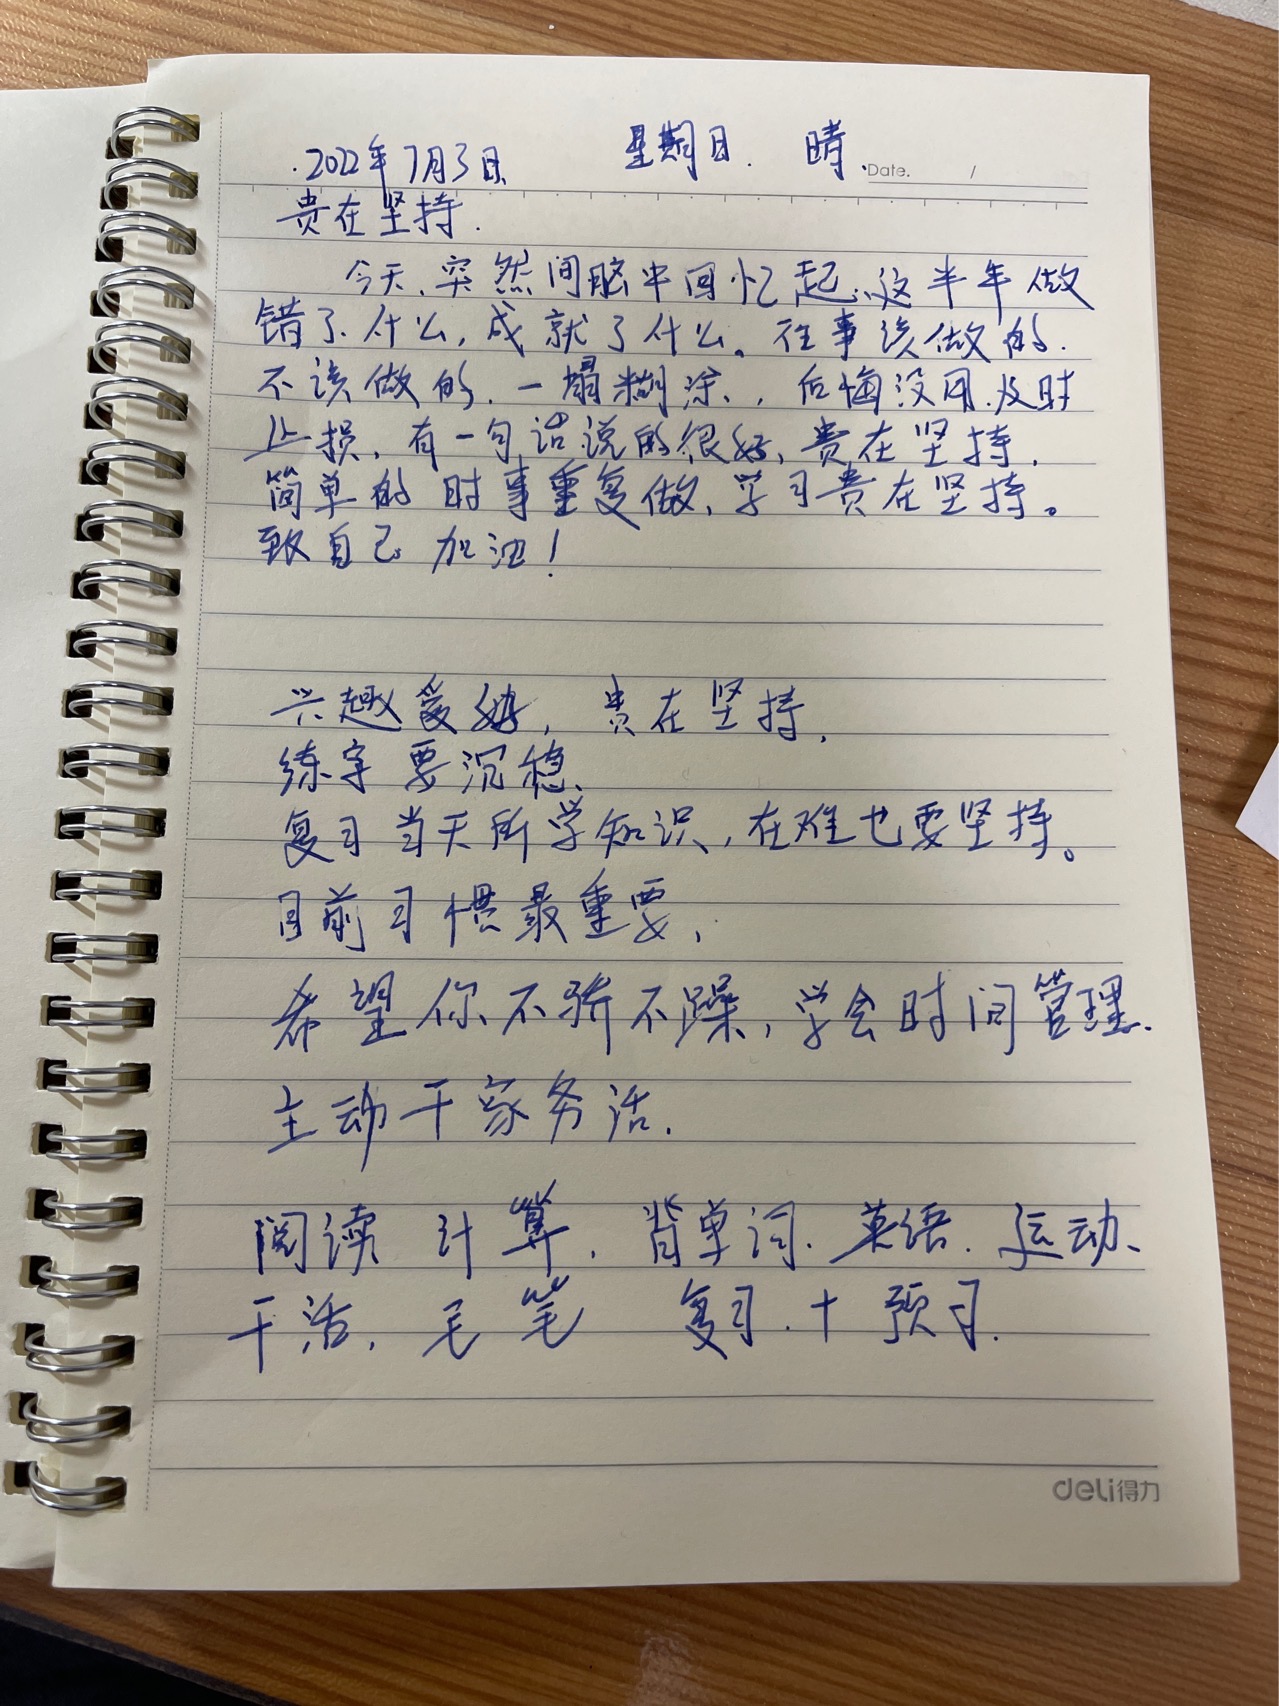 2022年7月3日 星期日. 晴 Date. /
贵在坚持.
今天、突然间脑中回忆起、这半年做
错了、什么,成就了什么。往事该做的.
不该做的、一塌糊涂、,后悔没用、及时
止损、有一句话说的很好、贵在坚持、
简单的时事重复做、学习贵在坚持。
致自己 加油!
兴趣爱好, 贵在坚持、
练字要沉稳、
复习当天所学知识,在难也要坚持。
目前习惯最重要、
希望你不骄不躁,学会时间管理.
主动干家务活.
阅读 计算、背单词、英语、运动、
干活, 毛笔 复习、十预习.
deli得力